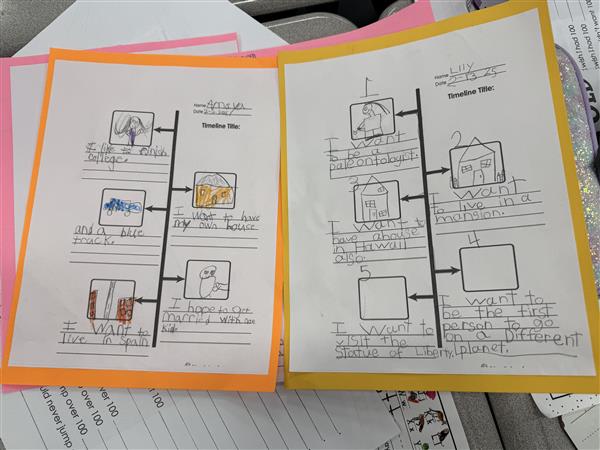 Name Amaya
Date
Timeline Title:
I like to finish
college.
I want to have
my own house
and a blue
truck.
I hope to get
married with one
kid
I want to
live in Spain
Name Lily
Date 2-13-25
Timeline Title:
1
I want
to be a
paleontologist.
2
I want
to live in a
mansion.
3
I want t
have a house
in Hawaii
also.
4
I want to
be the first
person to go
on a Different
planet.
5
I want to
visit the
Statue of Liberty.
I wish I had 100
I wish I had 100
I want 100
jump over 100
over 100
would never jump